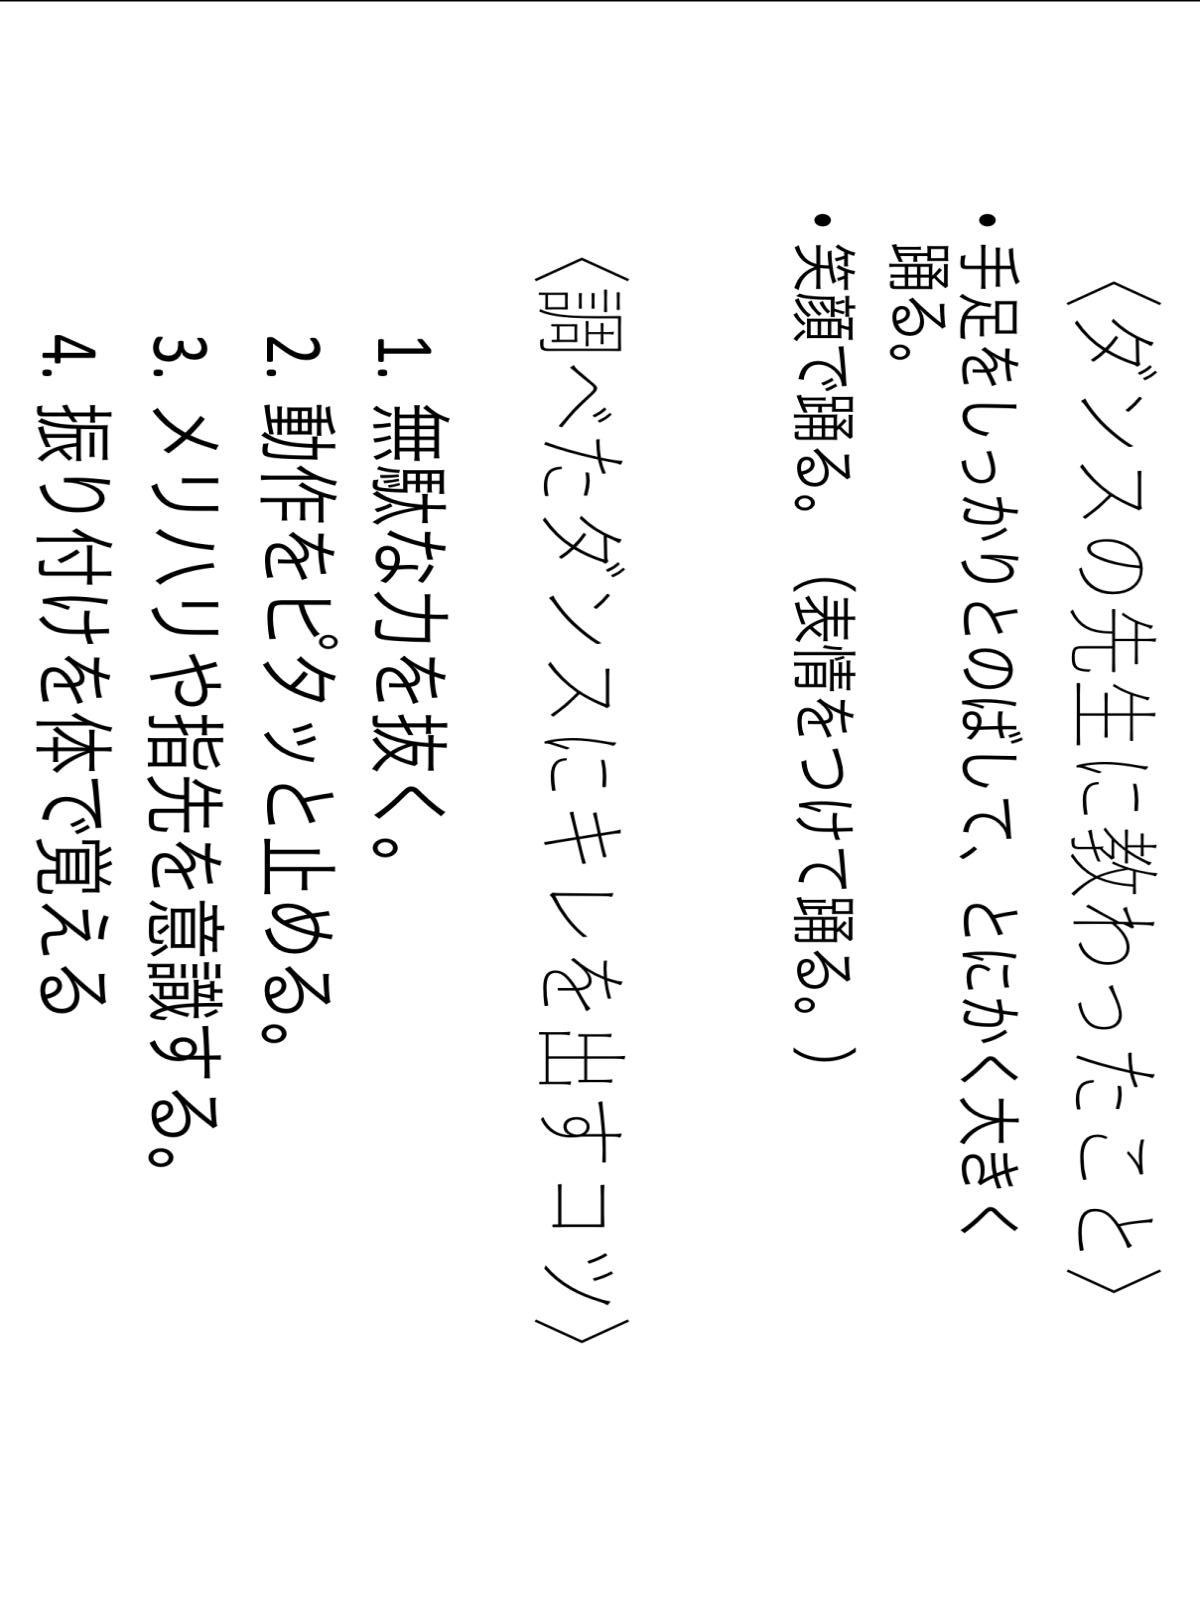 〈ダンスの先生に教わったこと〉
• 手足をしっかりとのばして、とにかく大きく
踊る。
• 笑顔で踊る。　（表情をつけて踊る。）
〈調べたダンスにキレを出すコツ〉
1. 無駄な力を抜く。
2. 動作をピタッと止める。
3. メリハリや指先を意識する。
4. 振り付けを体で覚える